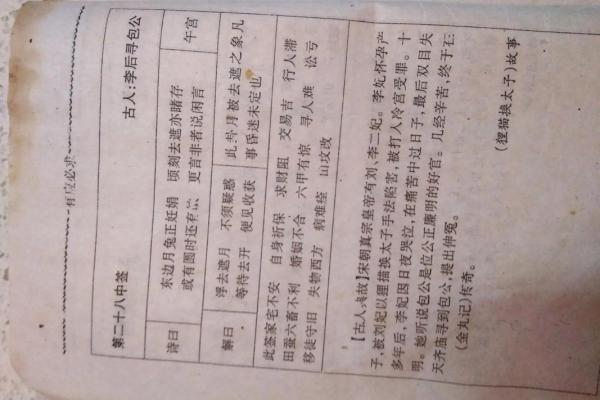 有应必求
第二十八中签 古人:李后寻包公
诗曰 东边月兔正妊娟 顷刻去遮亦睹存 午宫
或有圆时还有 更言非者说闲言
解曰 浮去遮月 不须疑惑 此卦月被去遮之象凡
等待去开 便见收获 事昏迷未定也
此签家宅不安 自身祈保 求财阻 交易吉 行人滞
田蚕六畜不利 婚姻不合 六甲有惊 寻人谯 讼亏
移徒守旧 失物西方 病难痊 山坟改
【古人典故】宋朝真宗皇帝有刘、李二妃。李妃怀孕产
子,被刘妃以狸猫换太子手法陷害,被打入冷宫受罪。十
多年后,李妃因日夜哭泣,在痛苦中过日子,最后双目失
明。她听说包公是位公正廉明的好官。几经辛苦,终于在
天齐庙寻到包公,提出伸冤。 (狸猫换太子)故事
(金丸记)传奇。